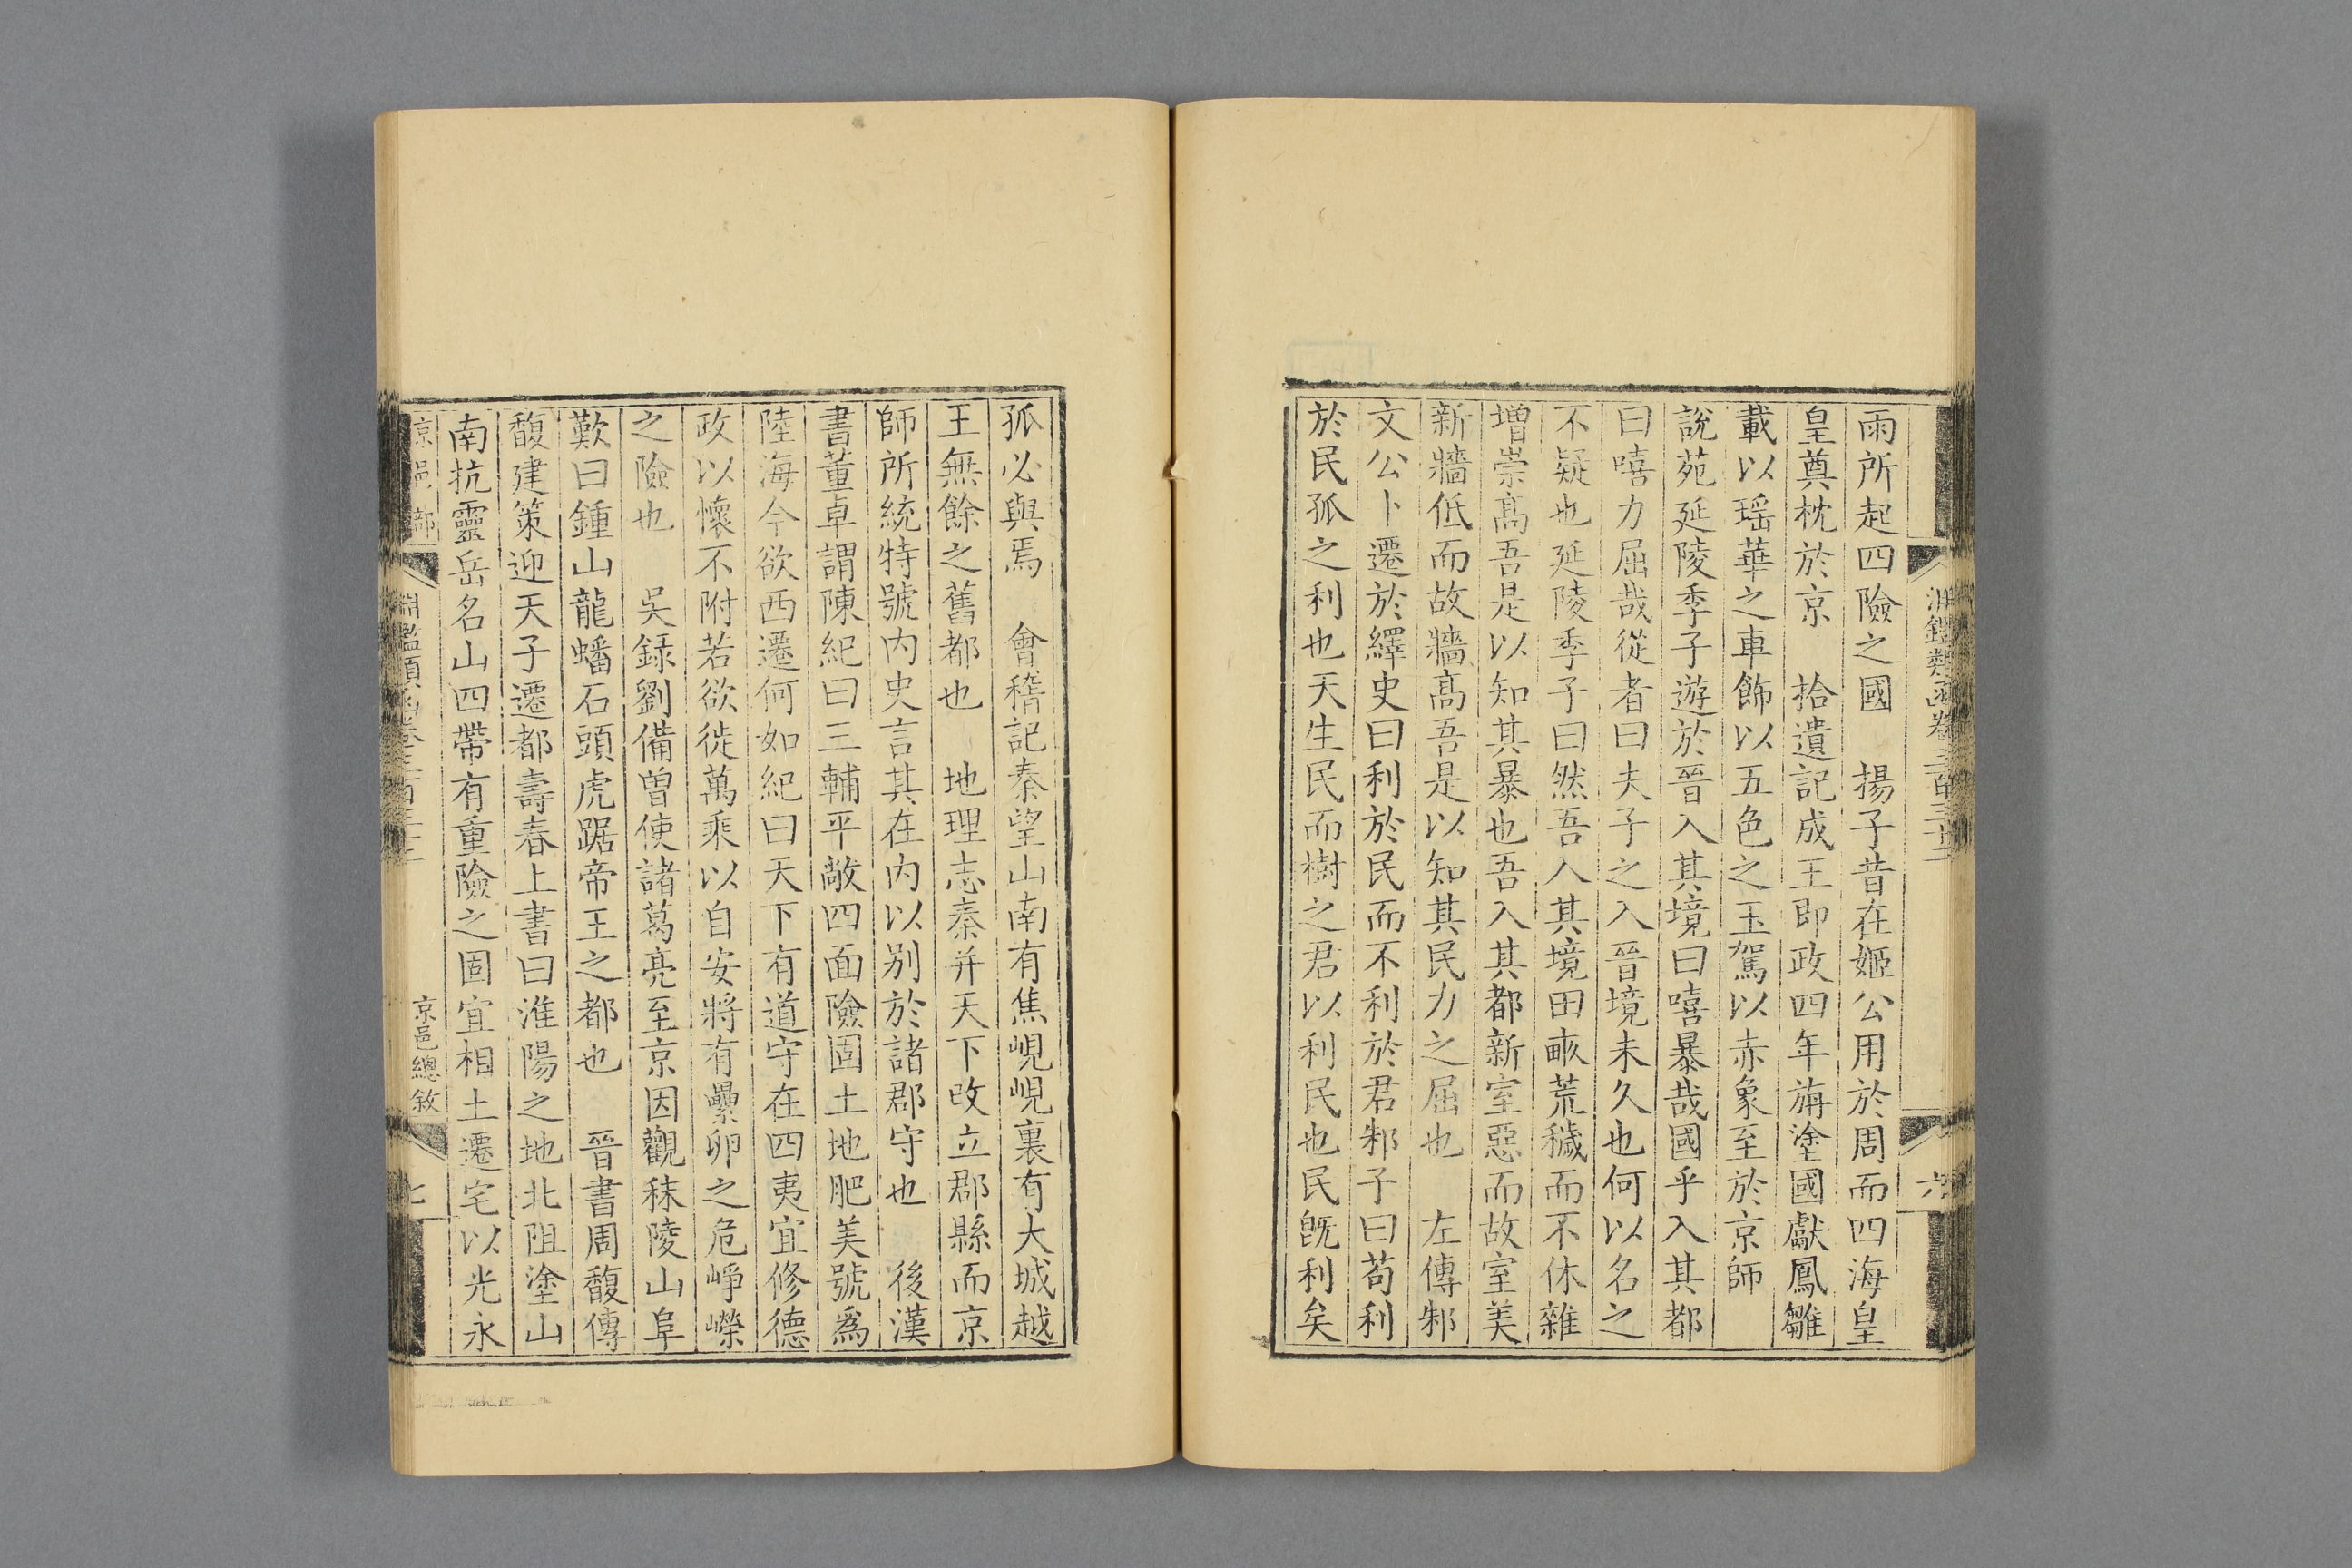 雨所起四險之國　揚子昔在姬公用於周而四海皇
皇奠枕於京　拾遺記成王即政四年旃塗國獻鳳雛
載以瑶華之車飾以五色之玉駕以赤象至於京師
說苑延陵季子遊於晉入其境曰嘻暴哉國乎入其都
曰嘻力屈哉從者曰夫子之入晉境未久也何以名之
不疑也延陵季子曰然吾入其境田畝荒穢而不休雜
增崇髙吾是以知其暴也吾入其都新室惡而故室美
新牆低而故牆髙吾是以知其民力之屈也　左傳邾
文公卜遷於繹史曰利於民而不利於君邾子曰苟利
於民孤之利也天生民而樹之君以利民也民既利矣
孤必與焉　會稽記秦望山南有焦峴峴裏有大城越
王無餘之舊都也　地理志秦并天下改立郡縣而京
師所統特號内史言其在内以别於諸郡守也　後漢
書董卓謂陳紀曰三輔平敞四面險固土地肥美號爲
陸海今欲西遷何如紀曰天下有道守在四夷宜修德
政以懷不附若欲徙萬乘以自安將有纍卵之危崢嶸
之險也　吳録劉備曽使諸葛亮至京因觀秣陵山阜
歎曰鍾山龍蟠石頭虎踞帝王之都也　晉書周馥傳
馥建策迎天子遷都壽春上書曰淮陽之地北阻塗山
南抗靈岳名山四帶有重險之固宜相土遷宅以光永
京邑部
淵鑑類函卷三百三十三
京邑總敘
七
淵鑑類函卷三百三十三
六